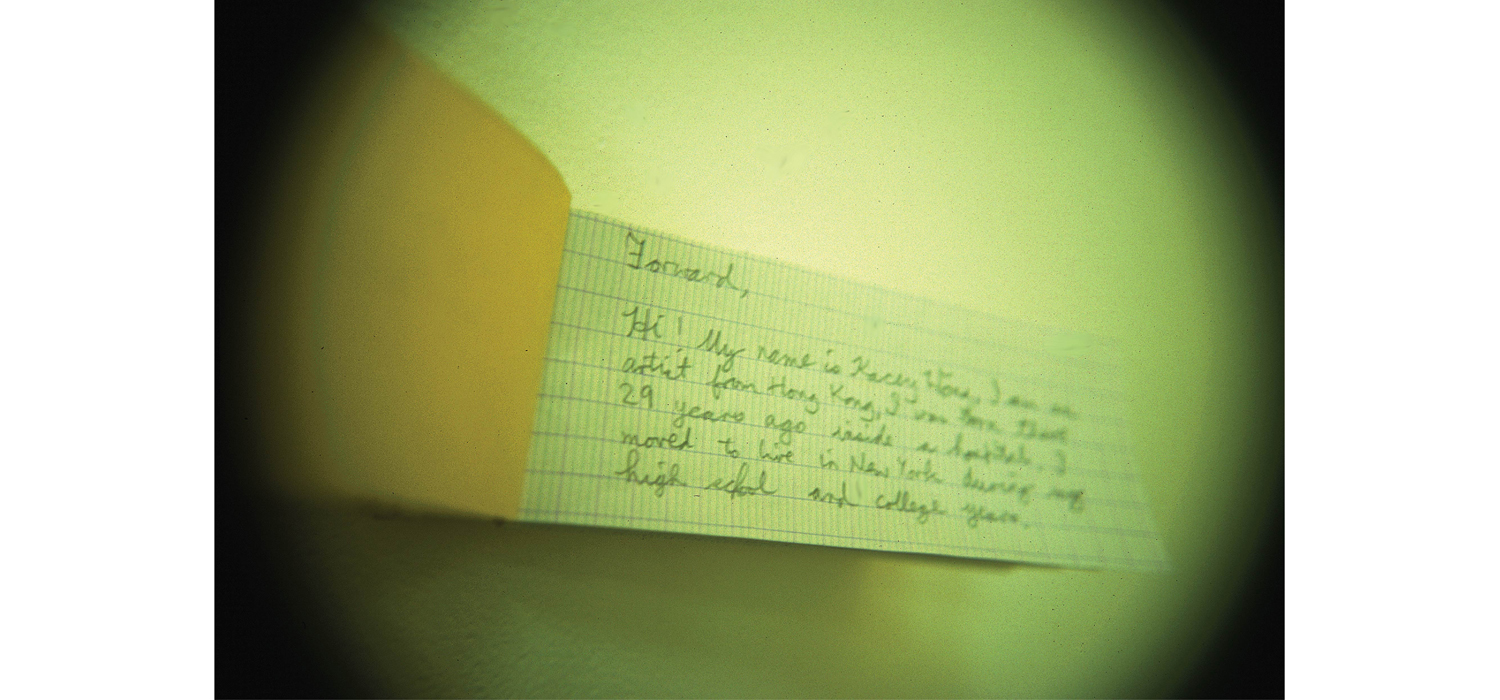 Forward,
Hi! My name is Kacey Wong, I am an
artist from Hong Kong, I was born there
29 years ago inside a hospital. I
moved to live in New York during my
high school and college years.